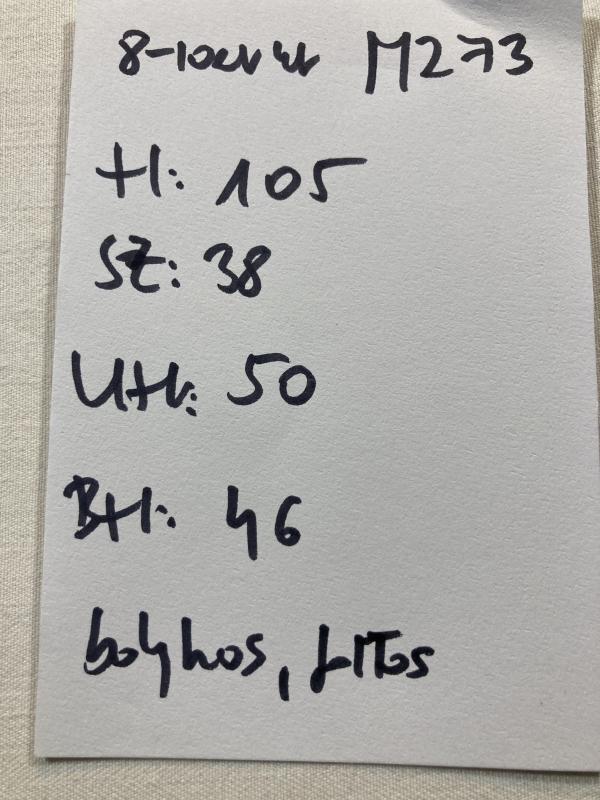 8-10 éves M273
H: 105
SZ: 38
UH: 50
BH: 46
bolyhos, foltos